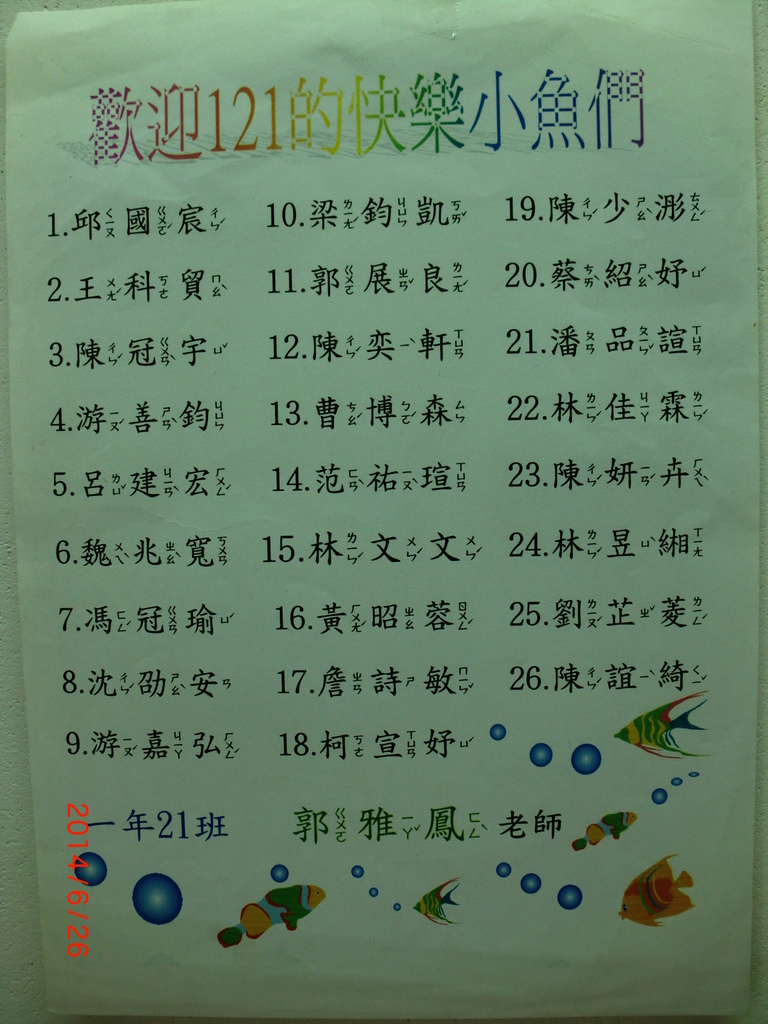 歡迎121的快樂小魚們
1.邱國宸
2.王科貿
3.陳冠宇
4.游善鈞
5.呂建宏
6.魏兆寬
7.馮冠瑜
8.沈劭安
9.游嘉弘
10.梁鈞凱
11.郭展良
12.陳奕軒
13.曹博森
14.范祐瑄
15.林文文
16.黃昭蓉
17.詹詩敏
18.柯宣妤
19.陳少浵
20.蔡紹妤
21.潘品諠
22.林佳霖
23.陳妍卉
24.林昱緗
25.劉芷菱
26.陳誼綺
一年21班 郭雅鳳老師
2014/6/26